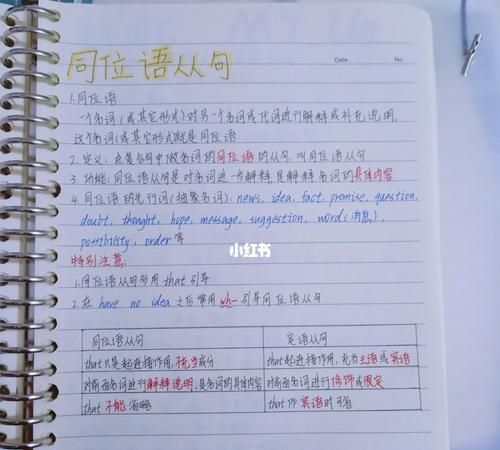 同位语从句
Date.
No.
1.同位语
一个名词(或其它形式)对另一个名词或代词进行解释或补充说明,
这个名词(或其它形式)就是同位语
2.定义:在复合句中做名词的同位语的从句,叫同位语从句
3.功能:同位语从句是对名词进一步解释,是解释名词的具体内容
4.同位语的先行词(抽象名词):news, idea, fact, promise, question,
doubt, thought, hope, message, suggestion, word(消息),
possibility, order等
小红书
特别注意:
1.同位语从句多用that引导
2.在 have no idea 之后常用wh-引导同位语从句
同位语从句 定语从句
that只是起连接作用,不充当成分 that起连接作用,充当主语或宾语
对前面名词进行解释说明,是名词的具体内容 对前面名词进行修饰或限定
that 不能省略 that作宾语时可省